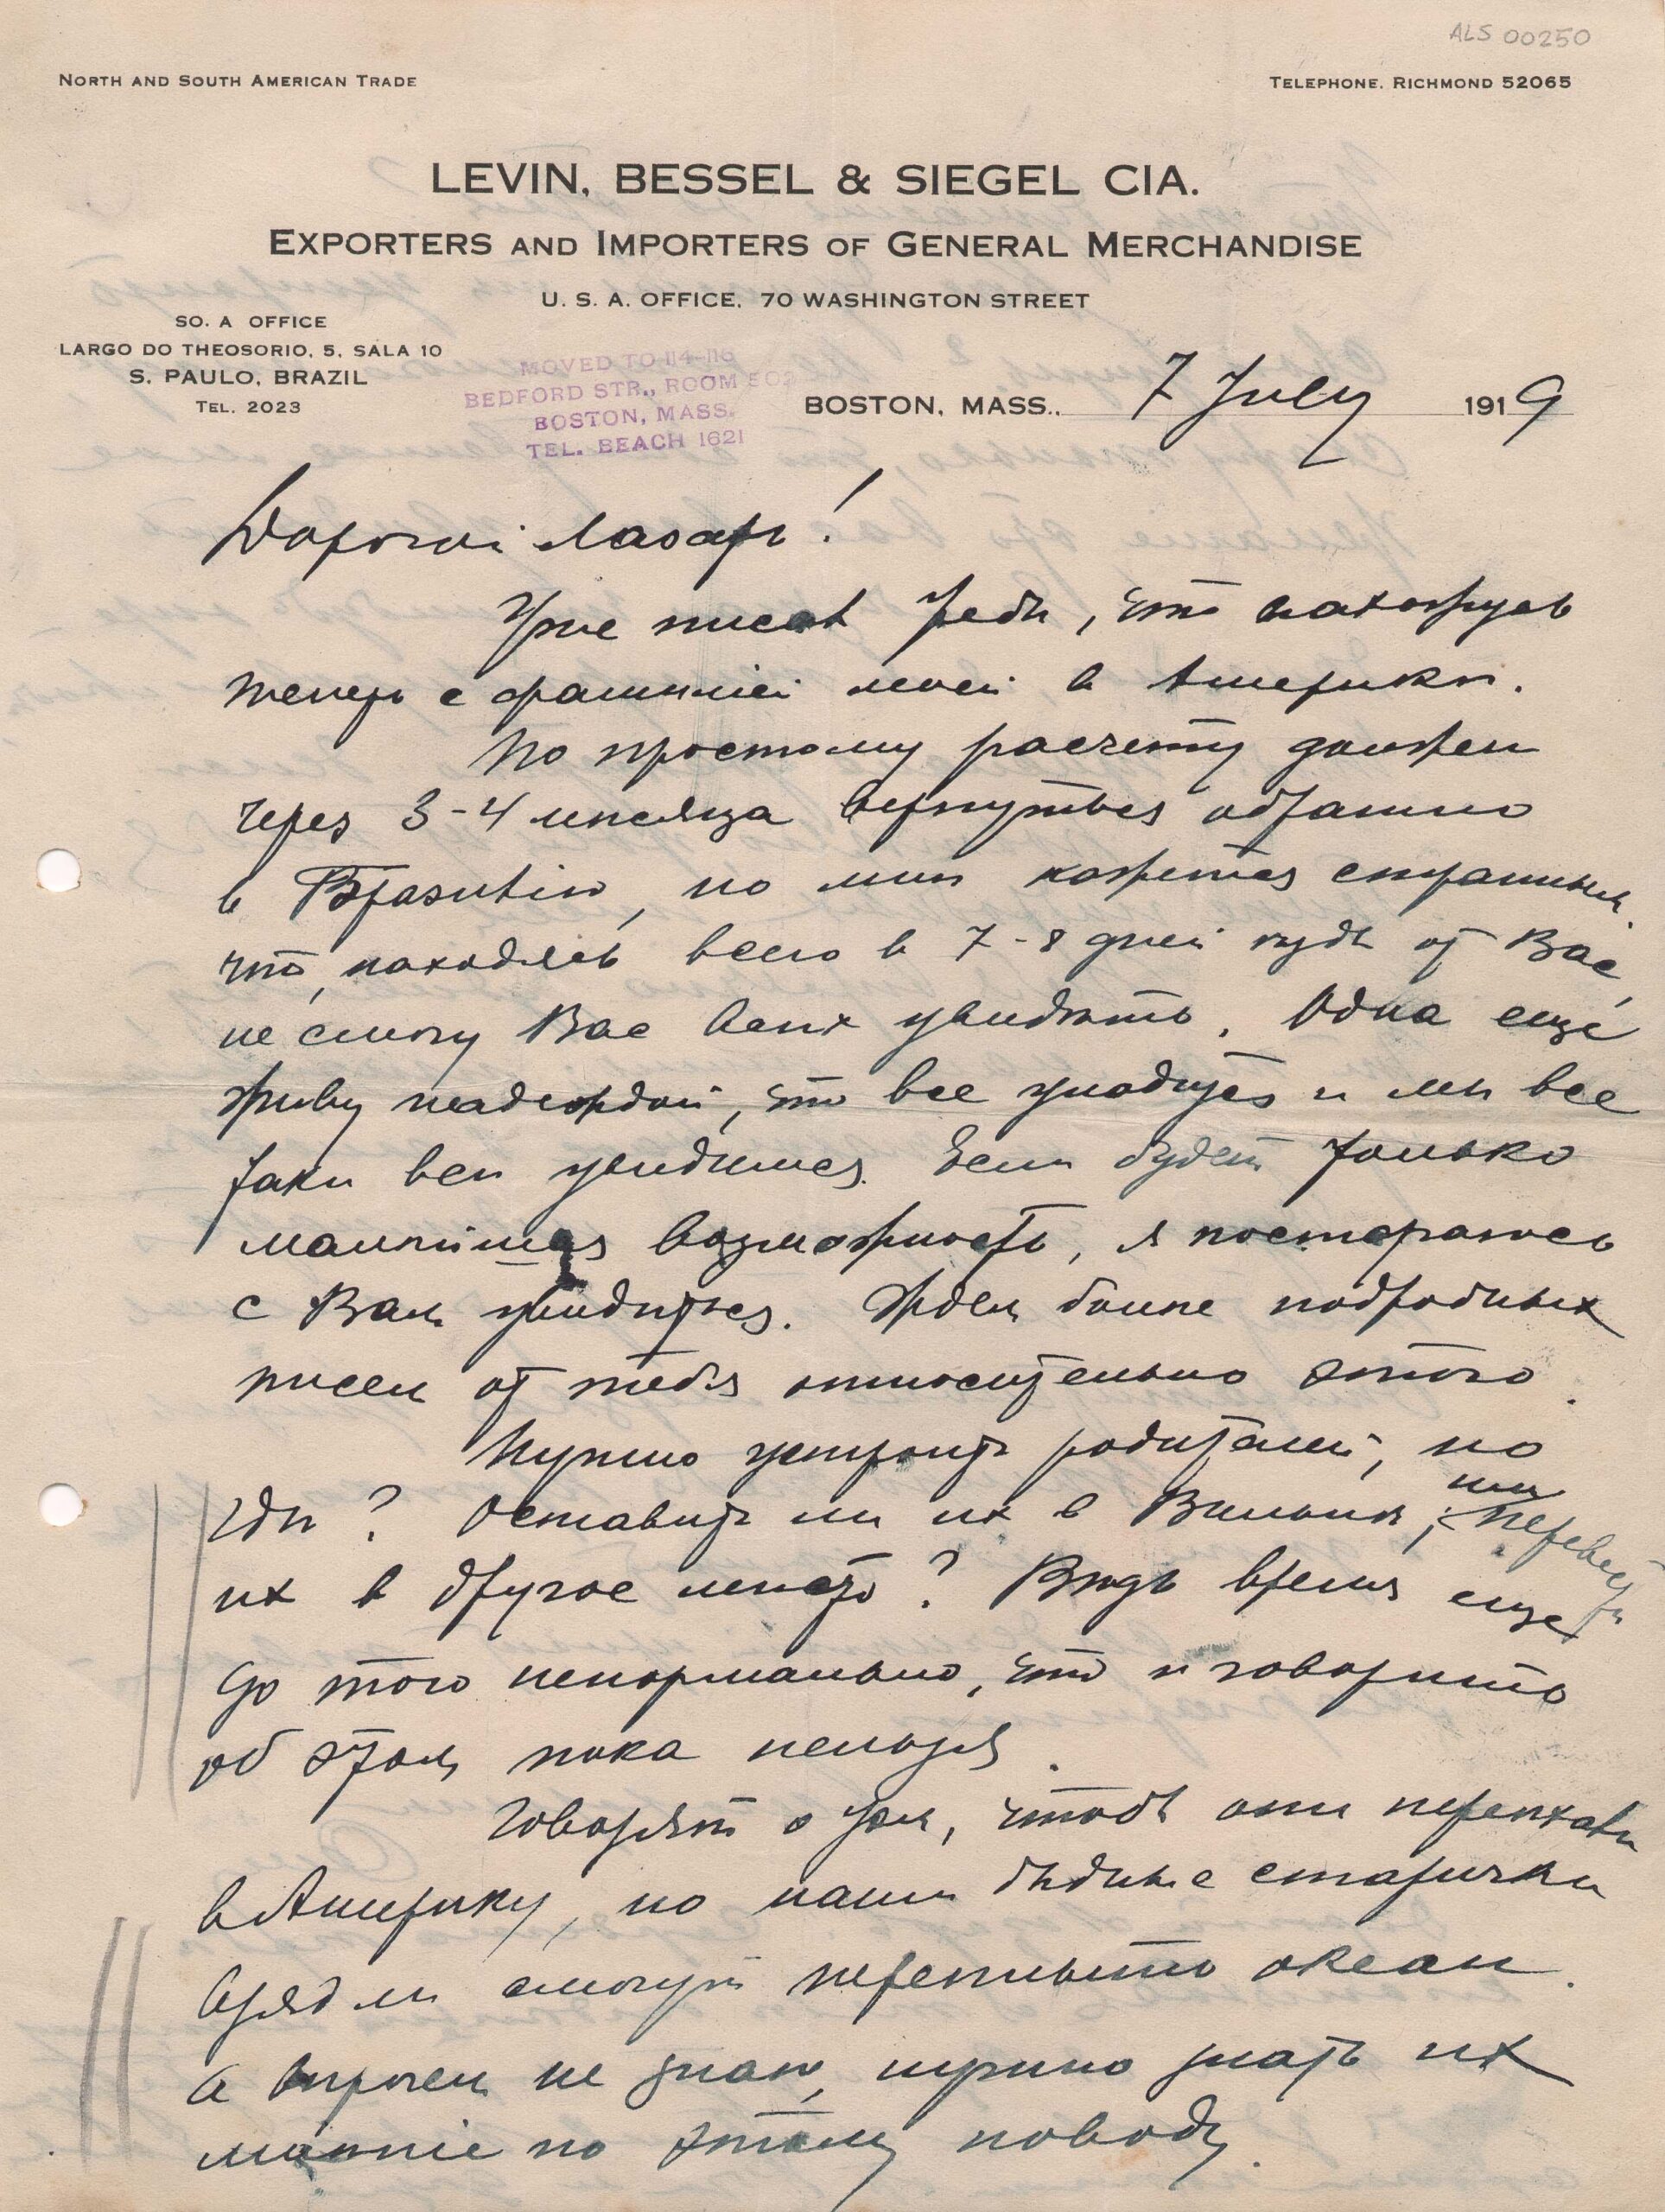 ALS 00250
NORTH AND SOUTH AMERICAN TRADE
TELEPHONE. RICHMOND 52065
LEVIN, BESSEL & SIEGEL CIA.
EXPORTERS AND IMPORTERS OF GENERAL MERCHANDISE
U. S. A. OFFICE, 70 WASHINGTON STREET
SO. A OFFICE
LARGO DO THEOSORIO, 5, SALA 10
S. PAULO, BRAZIL
TEL. 2023
MOVED TO 114-116
BEDFORD STR., ROOM 502
BOSTON, MASS.
TEL. BEACH 1621
BOSTON, MASS., 7 July 1919
Дорогой Лазарь!
Уже писал тебѣ, что нахожусь
теперь с фамиліей моей в Америкѣ.
По простому расчету должен
через 3-4 мѣсяца вернуться обратно
в Бразилію, но мнѣ кажется странным,
что, находясь всего в 7-8 дней ѣзды от Вас,
не смогу Вас всѣх увидѣть. Одна еще
живу надеждой, что все уладится и мы все
таки всѣ увидимся. Если будет только
малѣйшая возможность, я постараюсь
с Вами увидѣться. Ждем болѣе подробных
писем от тебя относительно этого.
Нужно устроить родителей, но
гдѣ? Оставить ли их в Вильнѣ, или перевезти
их в другое мѣсто? Вѣдь время еще
до того ненормально, что и говорить
об этом пока нельзя.
Говорят о том, чтобы они переѣхали
в Америку, но наши бѣдные старички
врядли смогут переплыть океан.
А впрочем не знаю, нужно знать их
мнѣніе по этому поводу.